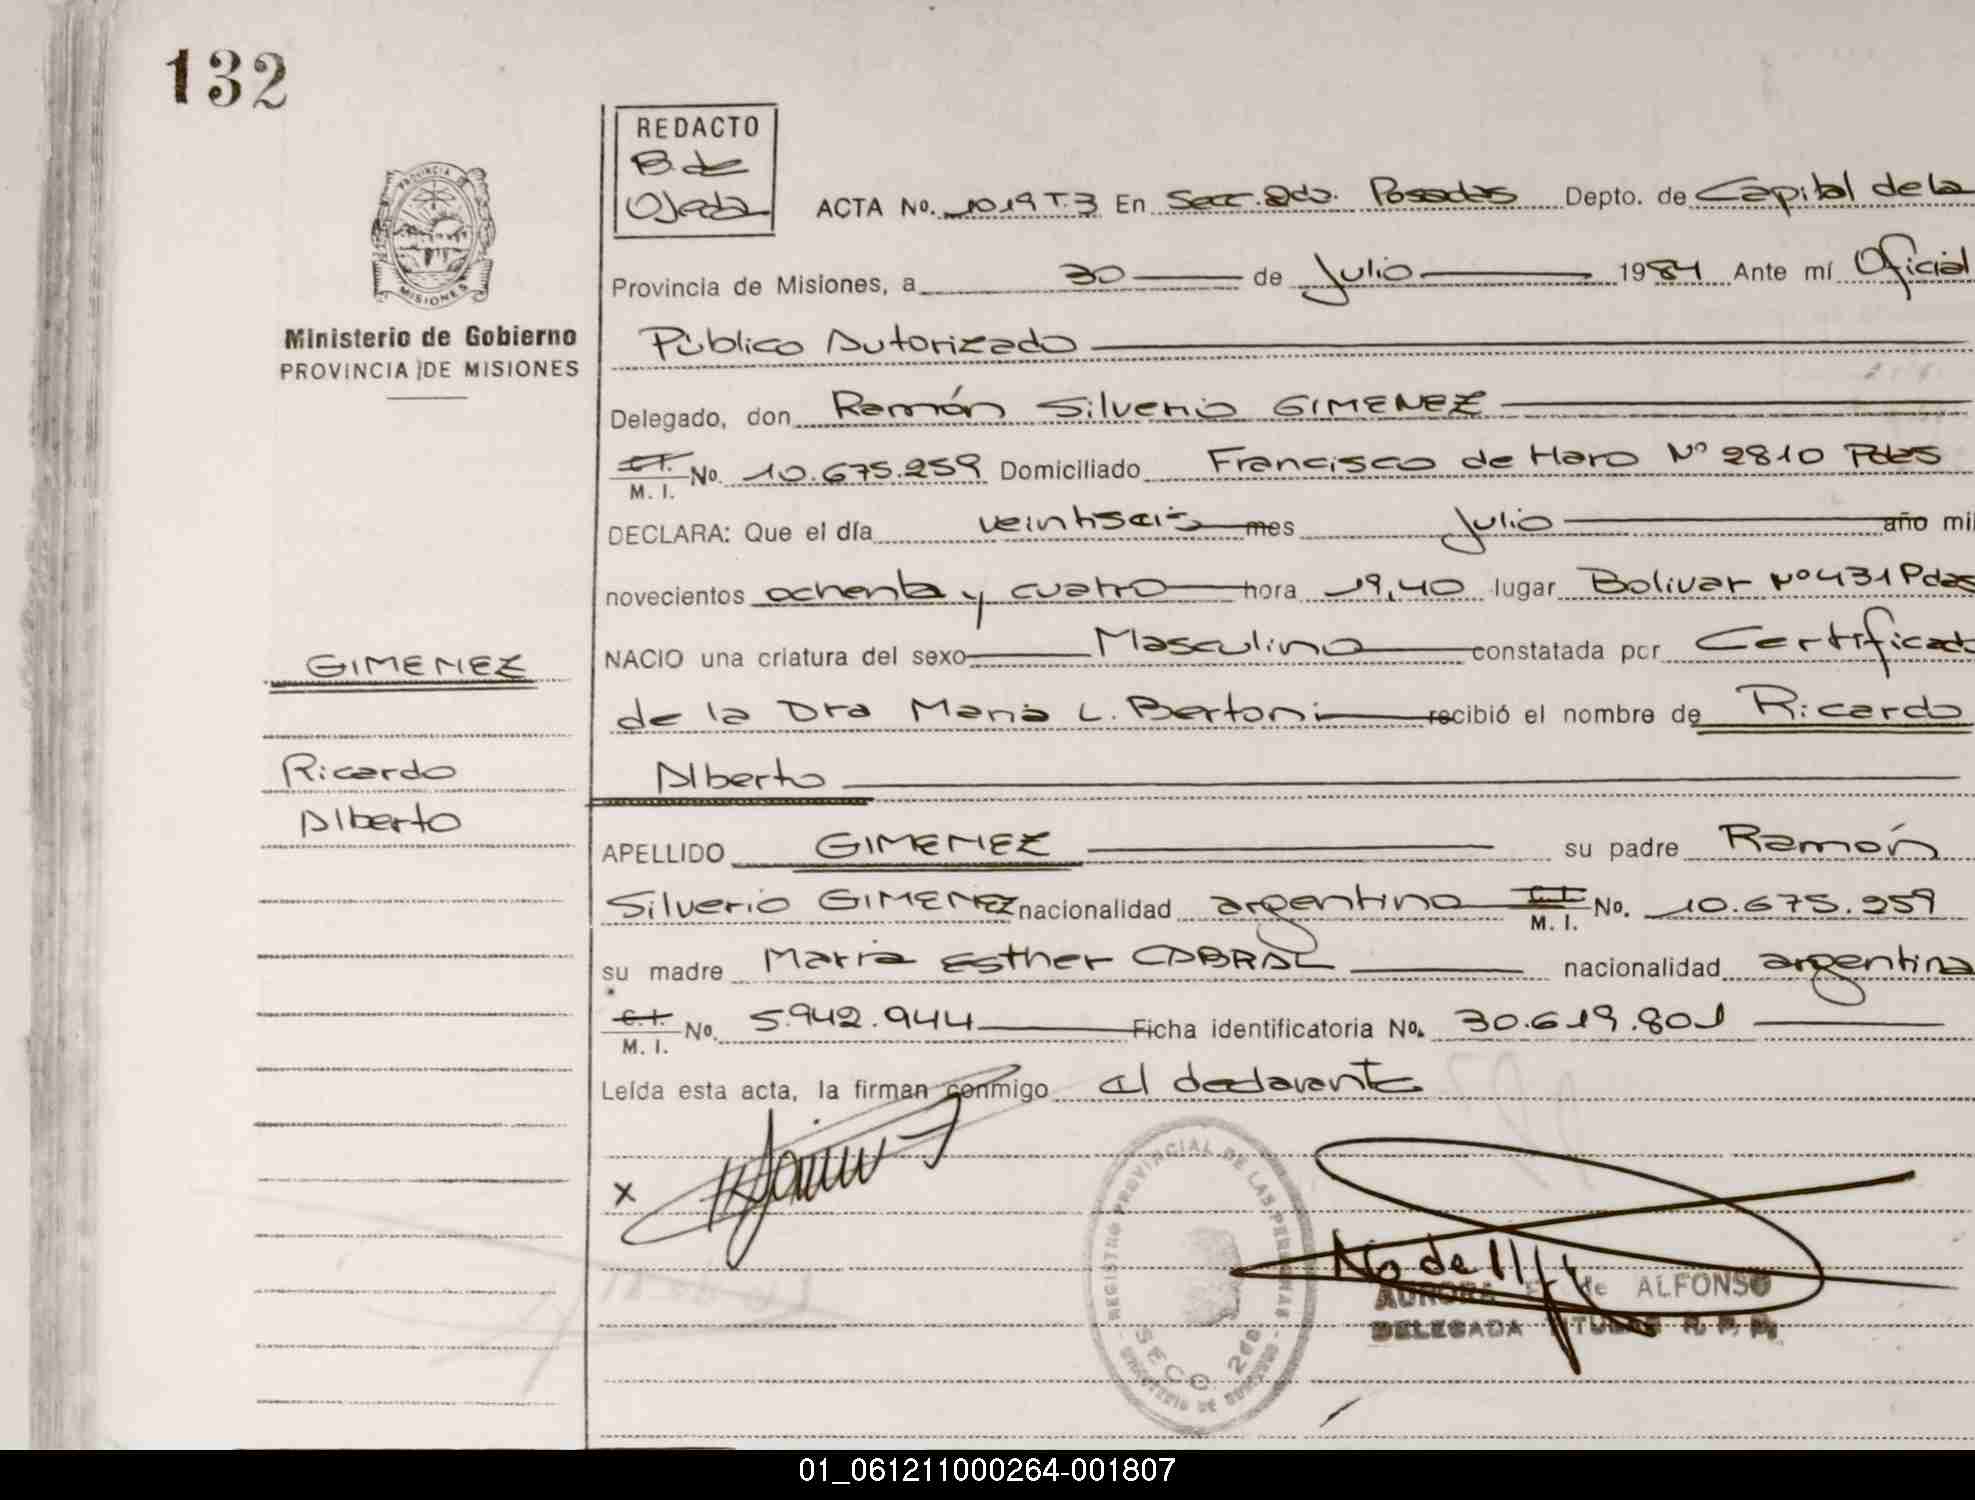 132
REDACTO
B. de
Ojeda
ACTA No. 1019 T.3 En Secc. 2da. Posadas Depto. de Capital de la
PROVINCIA DE
MISIONES
Provincia de Misiones, a 30 de Julio 1984 Ante mí Oficial
Ministerio de Gobierno
PROVINCIA DE MISIONES
Público Autorizado
Delegado, don Ramón Silverio GIMENEZ
C.I.
M. I. No. 10.675.259 Domiciliado Francisco de Haro Nº 2810 Pdas
DECLARA: Que el día veintiseis mes Julio año mil
novecientos ochenta y cuatro hora 19,40 lugar Bolivar Nº 431 Pdas
GIMENEZ
NACIO una criatura del sexo Masculino constatada por Certificado
de la Dra Maria L. Bertoni recibió el nombre de Ricardo
Ricardo
Alberto
Alberto
APELLIDO GIMENEZ su padre Ramón
Silverio GIMENEZ nacionalidad argentino C.I.
M. I. No. 10.675.259
su madre Maria Esther CABRAL nacionalidad argentina
C.I.
M. I. No. 5.942.944 Ficha identificatoria No. 30.619.801
Leída esta acta, la firman conmigo el declarante
x
REGISTRO PROVINCIAL DE LAS PERSONAS
SECC. 2da
AURORA de ALFONSO
DELEGADA TITULAR R. P. P.
01_061211000264-001807